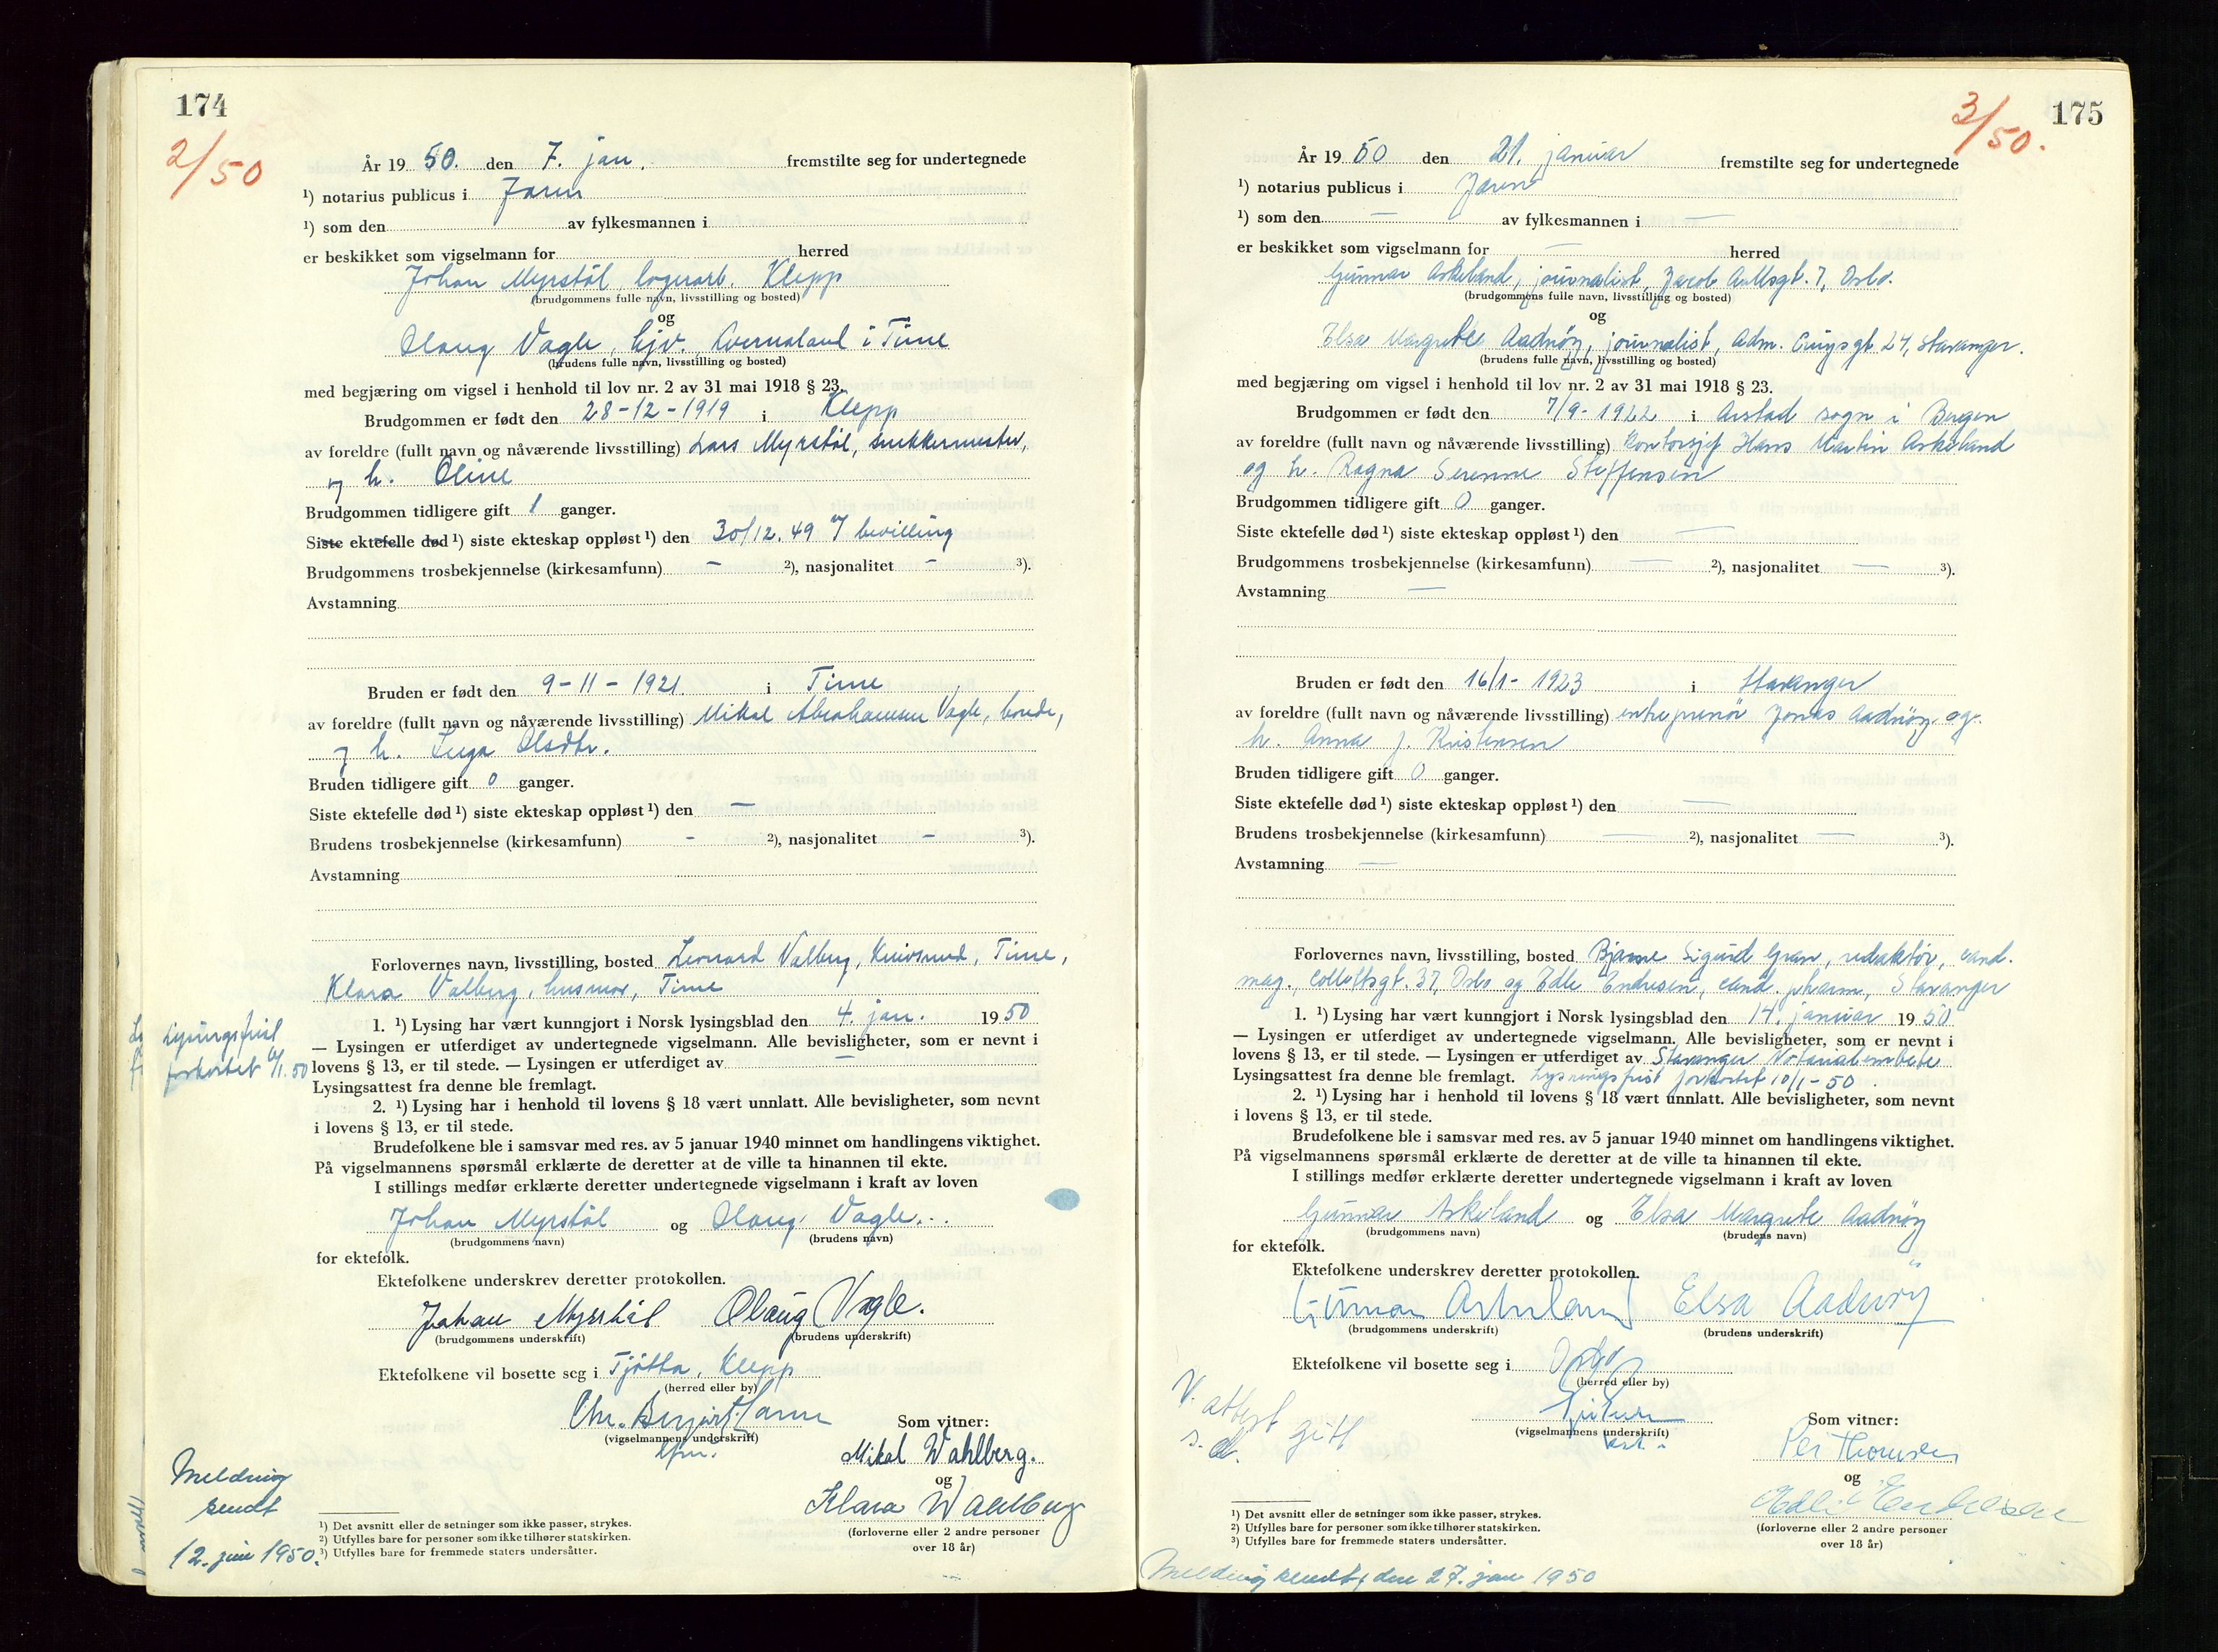 174
2/50
År 19 50. den 7. jan. fremstilte seg for undertegnede
¹) notarius publicus i Jæren
¹) som den av fylkesmannen i
er beskikket som vigselmann for herred
Johan Myrstøl, lagerarb. Klepp
(brudgommens fulle navn, livsstilling og bosted)
og
Olaug Vagle, hjv. Kvernaland i Time
(brudens fulle navn, livsstilling og bosted)
med begjæring om vigsel i henhold til lov nr. 2 av 31 mai 1918 § 23.
Brudgommen er født den 28-12-1919 i Klepp
av foreldre (fullt navn og nåværende livsstilling) Lars Myrstøl, snekkermester,
og h. Oline
Brudgommen tidligere gift 1 ganger.
Siste ektefelle død ¹) siste ekteskap oppløst ¹) den 30/12.49 v/ bevilling
Brudgommens trosbekjennelse (kirkesamfunn) - ²), nasjonalitet - ³).
Avstamning
Bruden er født den 9-11-1921. i Time
av foreldre (fullt navn og nåværende livsstilling) Mikal Abrahamsen Vagle, bonde,
og h. Inga Olsdtr.
Bruden tidligere gift 0 ganger.
Siste ektefelle død ¹) siste ekteskap oppløst ¹) den —
Brudens trosbekjennelse (kirkesamfunn) - ²), nasjonalitet - ³).
Avstamning
Forlovernes navn, livsstilling, bosted Leonard Valberg, Time,
Klara Valberg, husmor, Time
1. ¹) Lysing har vært kunngjort i Norsk lysingsblad den 4. jan. 19 50
— Lysingen er utferdiget av undertegnede vigselmann. Alle bevisligheter, som er nevnt i
lovens § 13, er til stede. — Lysingen er utferdiget av —
Lysingsattest fra denne ble fremlagt.
Lysingsfrist
forkortet 4/1.50
2. ¹) Lysing har i henhold til lovens § 18 vært unnlatt. Alle bevisligheter, som nevnt
i lovens § 13, er til stede.
Brudefolkene ble i samsvar med res. av 5 januar 1940 minnet om handlingens viktighet.
På vigselmannens spørsmål erklærte de deretter at de ville ta hinannen til ekte.
I stillings medfør erklærte deretter undertegnede vigselmann i kraft av loven
Johan Myrstøl og Olaug Vagle
(brudgommens navn) (brudens navn)
for ektefolk.
Ektefolkene underskrev deretter protokollen.
Johan Myrstøl Olaug Vagle.
(brudgommens underskrift) (brudens underskrift)
Ektefolkene vil bosette seg i Tjøtta, Klepp
(herred eller by)
Chr.
(vigselmannens underskrift)
Som vitner:
Mikal Wahlberg.
og
Klara Wahlberg
(forloverne eller 2 andre personer
over 18 år)
Melding
sendt
12. juni 1950.
¹) Det avsnitt eller de setninger som ikke passer, strykes.
²) Utfylles bare for personer som ikke tilhører statskirken.
³) Utfylles bare for fremmede staters undersåtter.
3/50.
175
År 19 50 den 21. januar fremstilte seg for undertegnede
¹) notarius publicus i Jæren
¹) som den — av fylkesmannen i —
er beskikket som vigselmann for — herred
Gunnar Askeland, journalist, Jacob Aallsgt. 7, Oslo.
(brudgommens fulle navn, livsstilling og bosted)
og
Elsa Margrethe Aadnøy, journalist, Adm. Cruysgt 24, Stavanger.
(brudens fulle navn, livsstilling og bosted)
med begjæring om vigsel i henhold til lov nr. 2 av 31 mai 1918 § 23.
Brudgommen er født den 7/9-1922 i Årstad sogn i Bergen
av foreldre (fullt navn og nåværende livsstilling) Kontorsjef Hans Martin Askeland
og h. Ragna Serenne Steffensen
Brudgommen tidligere gift 0 ganger.
Siste ektefelle død ¹) siste ekteskap oppløst ¹) den —
Brudgommens trosbekjennelse (kirkesamfunn) — ²), nasjonalitet — ³).
Avstamning —
Bruden er født den 16/1-1923 i Stavanger
av foreldre (fullt navn og nåværende livsstilling) entreprenør Jonas Aadnøy og
h. Anna J. Kristensen
Bruden tidligere gift 0 ganger.
Siste ektefelle død ¹) siste ekteskap oppløst ¹) den —
Brudens trosbekjennelse (kirkesamfunn) — ²), nasjonalitet — ³).
Avstamning —
Forlovernes navn, livsstilling, bosted Bjarne Sigurd Gran, redaktør, cand.
mag., Collettsgt. 37, Oslo og Edle Endresen, cand. pharm, Stavanger
1. ¹) Lysing har vært kunngjort i Norsk lysingsblad den 14. januar 19 50
— Lysingen er utferdiget av undertegnede vigselmann. Alle bevisligheter, som er nevnt i
lovens § 13, er til stede. — Lysingen er utferdiget av Stavanger Notarialembete
Lysingsattest fra denne ble fremlagt. Lysningsfrist forkortet 10/1-50.
2. ¹) Lysing har i henhold til lovens § 18 vært unnlatt. Alle bevisligheter, som nevnt
i lovens § 13, er til stede.
Brudefolkene ble i samsvar med res. av 5 januar 1940 minnet om handlingens viktighet.
På vigselmannens spørsmål erklærte de deretter at de ville ta hinannen til ekte.
I stillings medfør erklærte deretter undertegnede vigselmann i kraft av loven
Gunnar Askeland og Elsa Margrete Aadnøy
(brudgommens navn) (brudens navn)
for ektefolk.
Ektefolkene underskrev deretter protokollen.
Gunnar Askeland Elsa Aadnøy
(brudgommens underskrift) (brudens underskrift)
Ektefolkene vil bosette seg i Oslo
(herred eller by)
V. attest gitt
s.d.
(vigselmannens underskrift)
Som vitner:
Per Thomsen
og
Edle Endresen
(forloverne eller 2 andre personer
over 18 år)
¹) Det avsnitt eller de setninger som ikke passer, strykes.
²) Utfylles bare for personer som ikke tilhører statskirken.
³) Utfylles bare for fremmede staters undersåtter.
Melding sendt, den 27. jan 1950